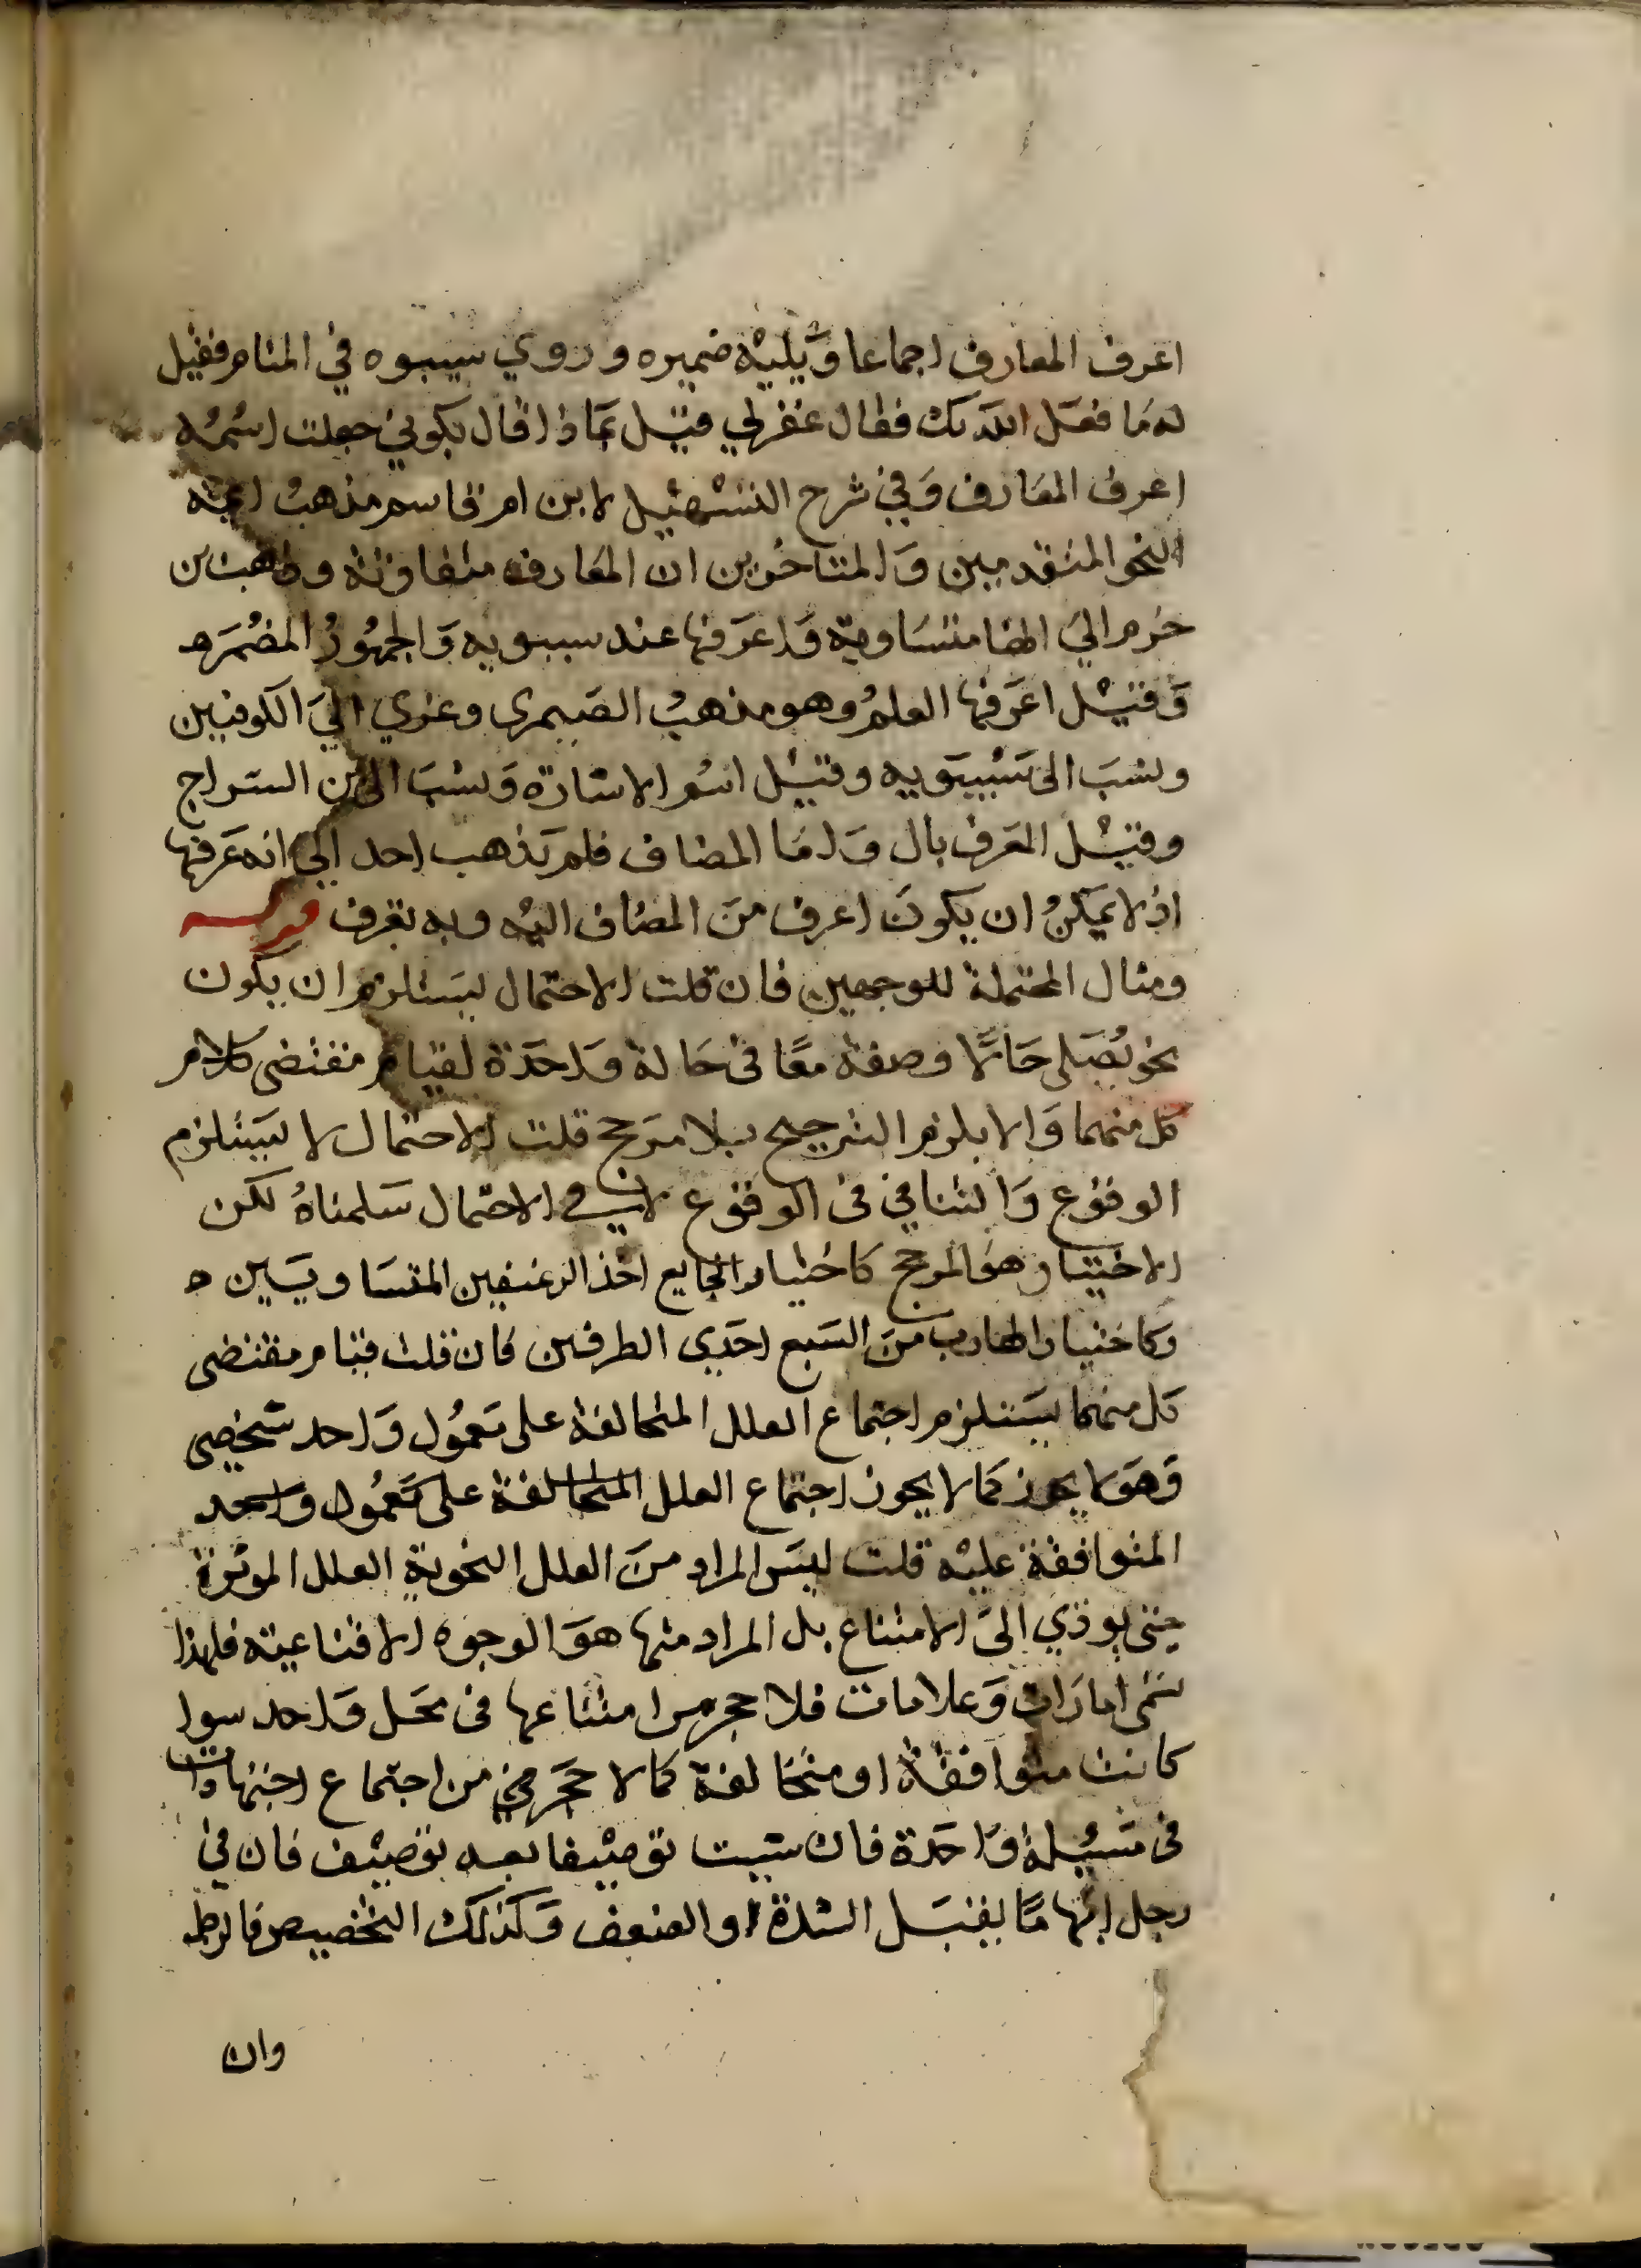 اعرف المعارف اجماعا وَيليْه ضميره وروي سيبوه في المنام ففيل
له مَا فعَل الله بك فقال غفر لي فقيل بماذا قال بكوني جعلت اسمُه
اعرف المعَارف وَفي شرح التسْهيْل لابن ام قاسم مذهبُ ايمة
النحو المتقدمين وَالمتاخرين ان المعَارف متفاوتة وذهب بن
حزم اليَ انها متسَاوية وَاعرَفها عند سيبويه وَالجمهُورُ المضمَر ه
وَقيْل اعرَفها العلمُ وهو مذهبُ الصَيمرى وعزي اليَ الكوفيين
ونسَبَ الى سَيْبَويه وقيْل اسْم الاشارة وَنسَبَ الى بن السَراج
وقيْل المعَرف بال وَامَا المضاف فلم يَذهب احد الي انه عَرفها
اذ لا يمَكنُ ان يكونَ اعرف منَ المضَاف اليْه وبه تعَرف قوله
ومثال المحتملة للوجهين فان قلت الاحتمال يسَتلزم ان يكون
نحو يُصَلى حَالًا وصفة معًا فى حَالة وَاحدَة لقيام مقتضى كلام
كل منهما وَالا يلزم الترجيح بلا مرَجح قلت الاحتمال لا يسَتلزم
الوقوع وَالتنافي فى الوقوع لا في الاحتمال سَلمناهُ لكن
الاختيار هوَ المرجح كاختيار الجايع اخذ الرغيفين المتسَاويَين ه
وَكاختيار الهارب منَ السَبع احَدي الطرفين فان قلت قيام مقتضى
كل منهمَا يسَتلزم اجتماع العلل المتخالفة على مَعمُول وَاحد شخصي
وَهوَ لا يجوز كمَا لا يجوز اجتماع العلل المتخالفة على مَعمُول واحد
المتوافقة عليْه قلت ليسَ المراد منَ العلل النحوية العلل الموثرة
حتى يوذي الىَ الامتناع بل المراد منها هوَ الوجوه الاقناعية فلهذا
تسَمى امارَات وَعلامات فلا حجر من امتناعها فى محَل وَاحد سوا
كانت متوافقة او متخالفة كما لا حَجَر في من اجتماع اجتهادات
فى مسَيْلة وَاحدَة فان شيت توصيْفا بعد توصيْف فان في
رجل ابهامًا يقبَل الشدة او الضعف وَكذلك التخصيص فانظر
وان